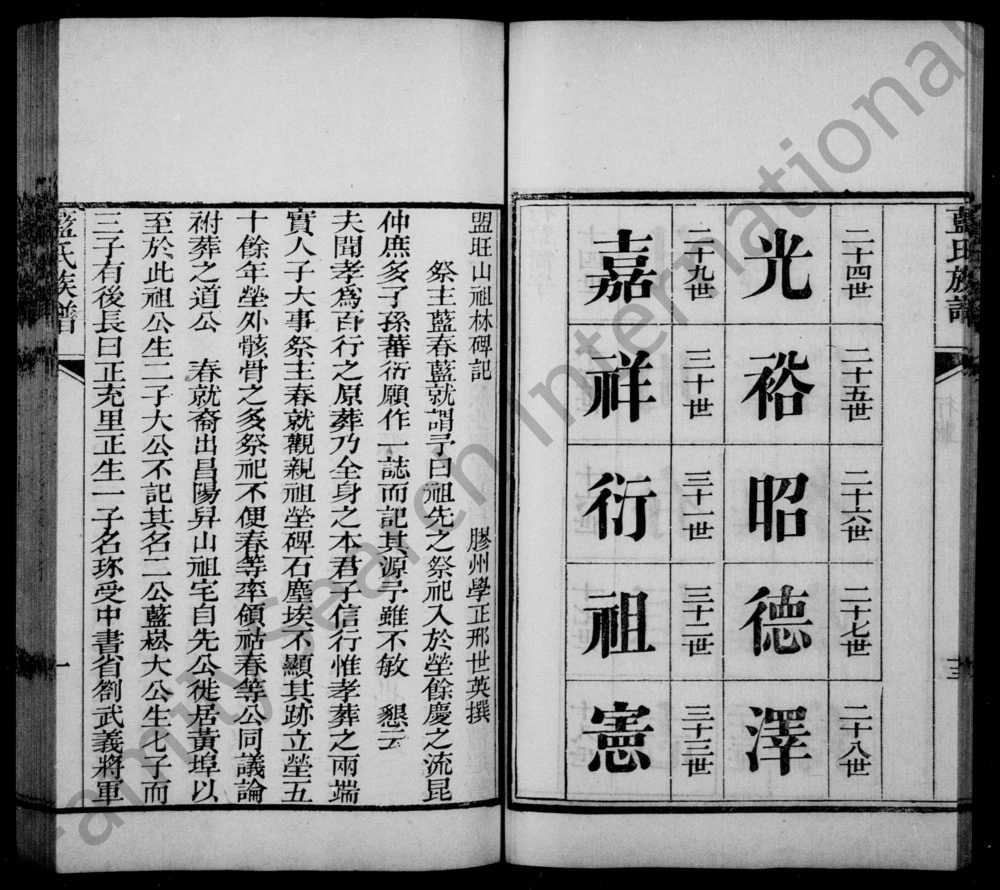 藍氏族譜
二十四世 二十五世 二十六世 二十七世 二十八世
光 裕 昭 德 澤
二十九世 三十世 三十一世 三十二世 三十三世
嘉 祥 衍 祖 憲
三
盟旺山祖林碑記 膠州學正邢世英撰
祭主藍春藍就謂予曰祖先之祭祀入於塋餘慶之流昆
仲庶多子孫蕃衍願作一誌而記其源予雖不敏 懇云
夫聞孝為百行之原葬乃全身之本君子信行惟孝葬之兩端
實人子大事祭主春就觀親祖塋碑石塵埃不顯其跡立塋五
十餘年塋外骸骨之多祭祀不便春等率領祜春等公同議論
祔葬之道公 春就裔出昌陽昇山祖宅自先公徙居黃埠以
至於此祖公生二子大公不記其名二公藍崧大公生七子而
三子有後長曰正充里正生一子名珎受中書省劄武義將軍
藍氏族譜
一
FamilySearch International